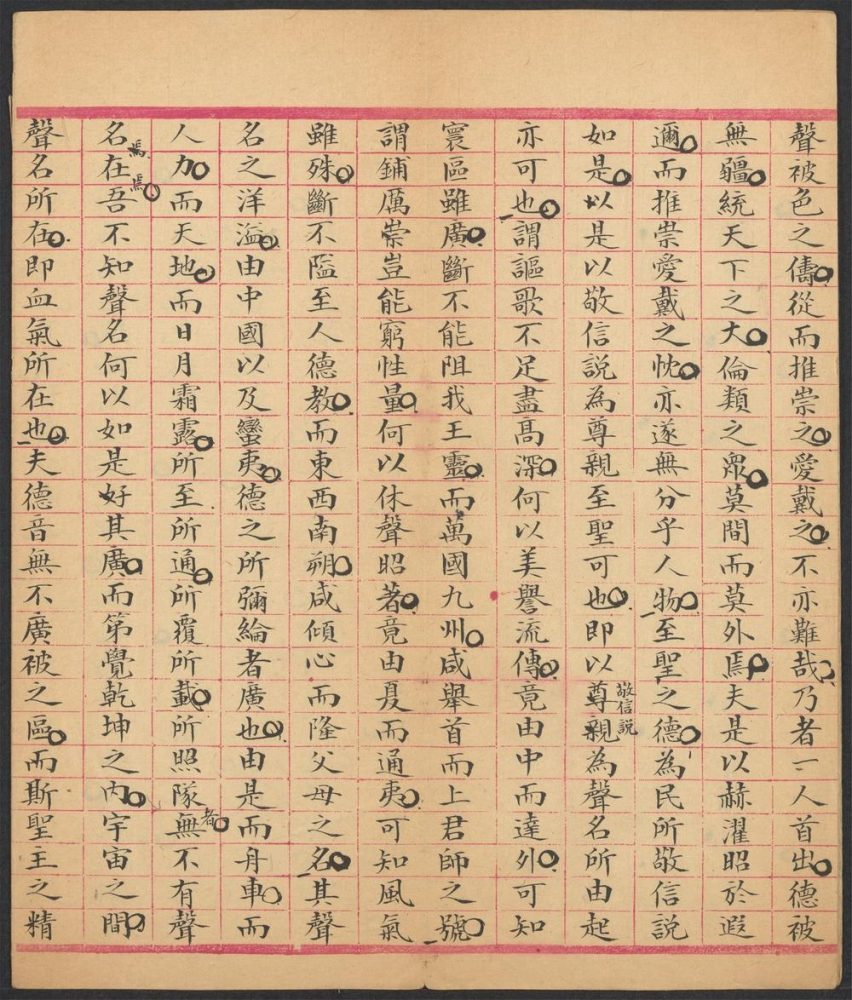 聲被色之儔從而推崇之愛戴之不亦難哉乃者一人首出德被
無疆統天下之大倫類之眾莫間而莫外焉夫是以赫濯昭於遐
邇而推崇愛戴之忱亦遂無分乎人物至聖之德為民所敬信說
如是以是以敬信說為尊親至聖可也即以尊親為聲名所由起
敬信說
亦可也謂謳歌不足盡高深何以美譽流傳竟由中而達外可知
寰區雖廣斷不能阻我王靈而萬國九州咸舉首而上君師之號
謂鋪厲崇豈能窮性量何以休聲昭著竟由夏而通夷可知風氣
雖殊斷不隘至人德教而東西南朔咸傾心而隆父母之名其聲
名之洋溢由中國以及蠻夷德之所彌綸者廣也由是而舟車而
人力而天地而日月霜露所至所通所覆所載所照隊無不有聲
者
名在吾不知聲名何以如是好其廣而第覺乾坤之內宇宙之間
焉
焉
聲名所在即血氣所在也夫德音無不廣被之區而斯聖主之精